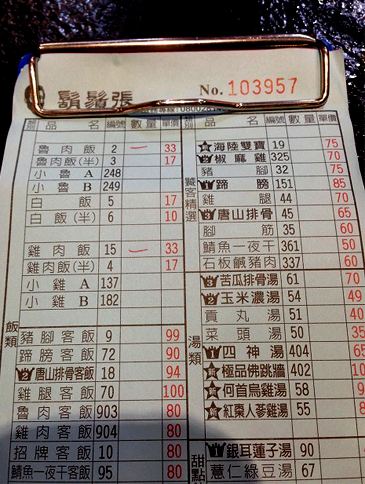 鬍鬚張 No. 103957
品名 編號 數量 單價
魯肉飯 2 一 33
魯肉飯(半) 3 17
小魯A 248
小魯B 249
白飯 5 17
白飯(半) 6 10
雞肉飯 15 一 33
雞肉飯(半) 4 17
小雞A 137
小雞B 182
飯類
豬腳客飯 9 99
蹄膀客飯 72 90
唐山排骨客飯 18 94
雞腿客飯 70 100
魯肉客飯 903 80
雞肉客飯 904 80
招牌客飯 10 80
鯖魚一夜干客飯 95 80
品名 編號 數量 單價
饕客精選
海陸雙寶 19 75
椒麻雞 325 70
豬腳 32 75
蹄膀 151 85
雞腿 44 70
唐山排骨 45 65
腳筋 35 60
鯖魚一夜干 361 50
石板鹹豬肉 337 60
湯類
苦瓜排骨湯 61 70
玉米濃湯 54 49
貢丸湯 51 40
菜頭湯 50 35
四神湯 404 65
極品佛跳牆 402
何首烏雞湯 58
紅棗人蔘雞湯 55
銀耳蓮子湯 90
薏仁綠豆湯 67